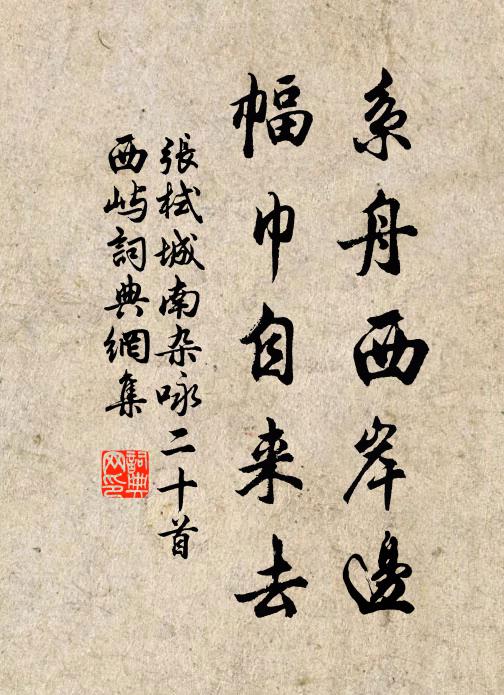 系舟西岸邊
幅巾自来去
張栻城南杂咏二十首
西屿詞典網集
詞典網印